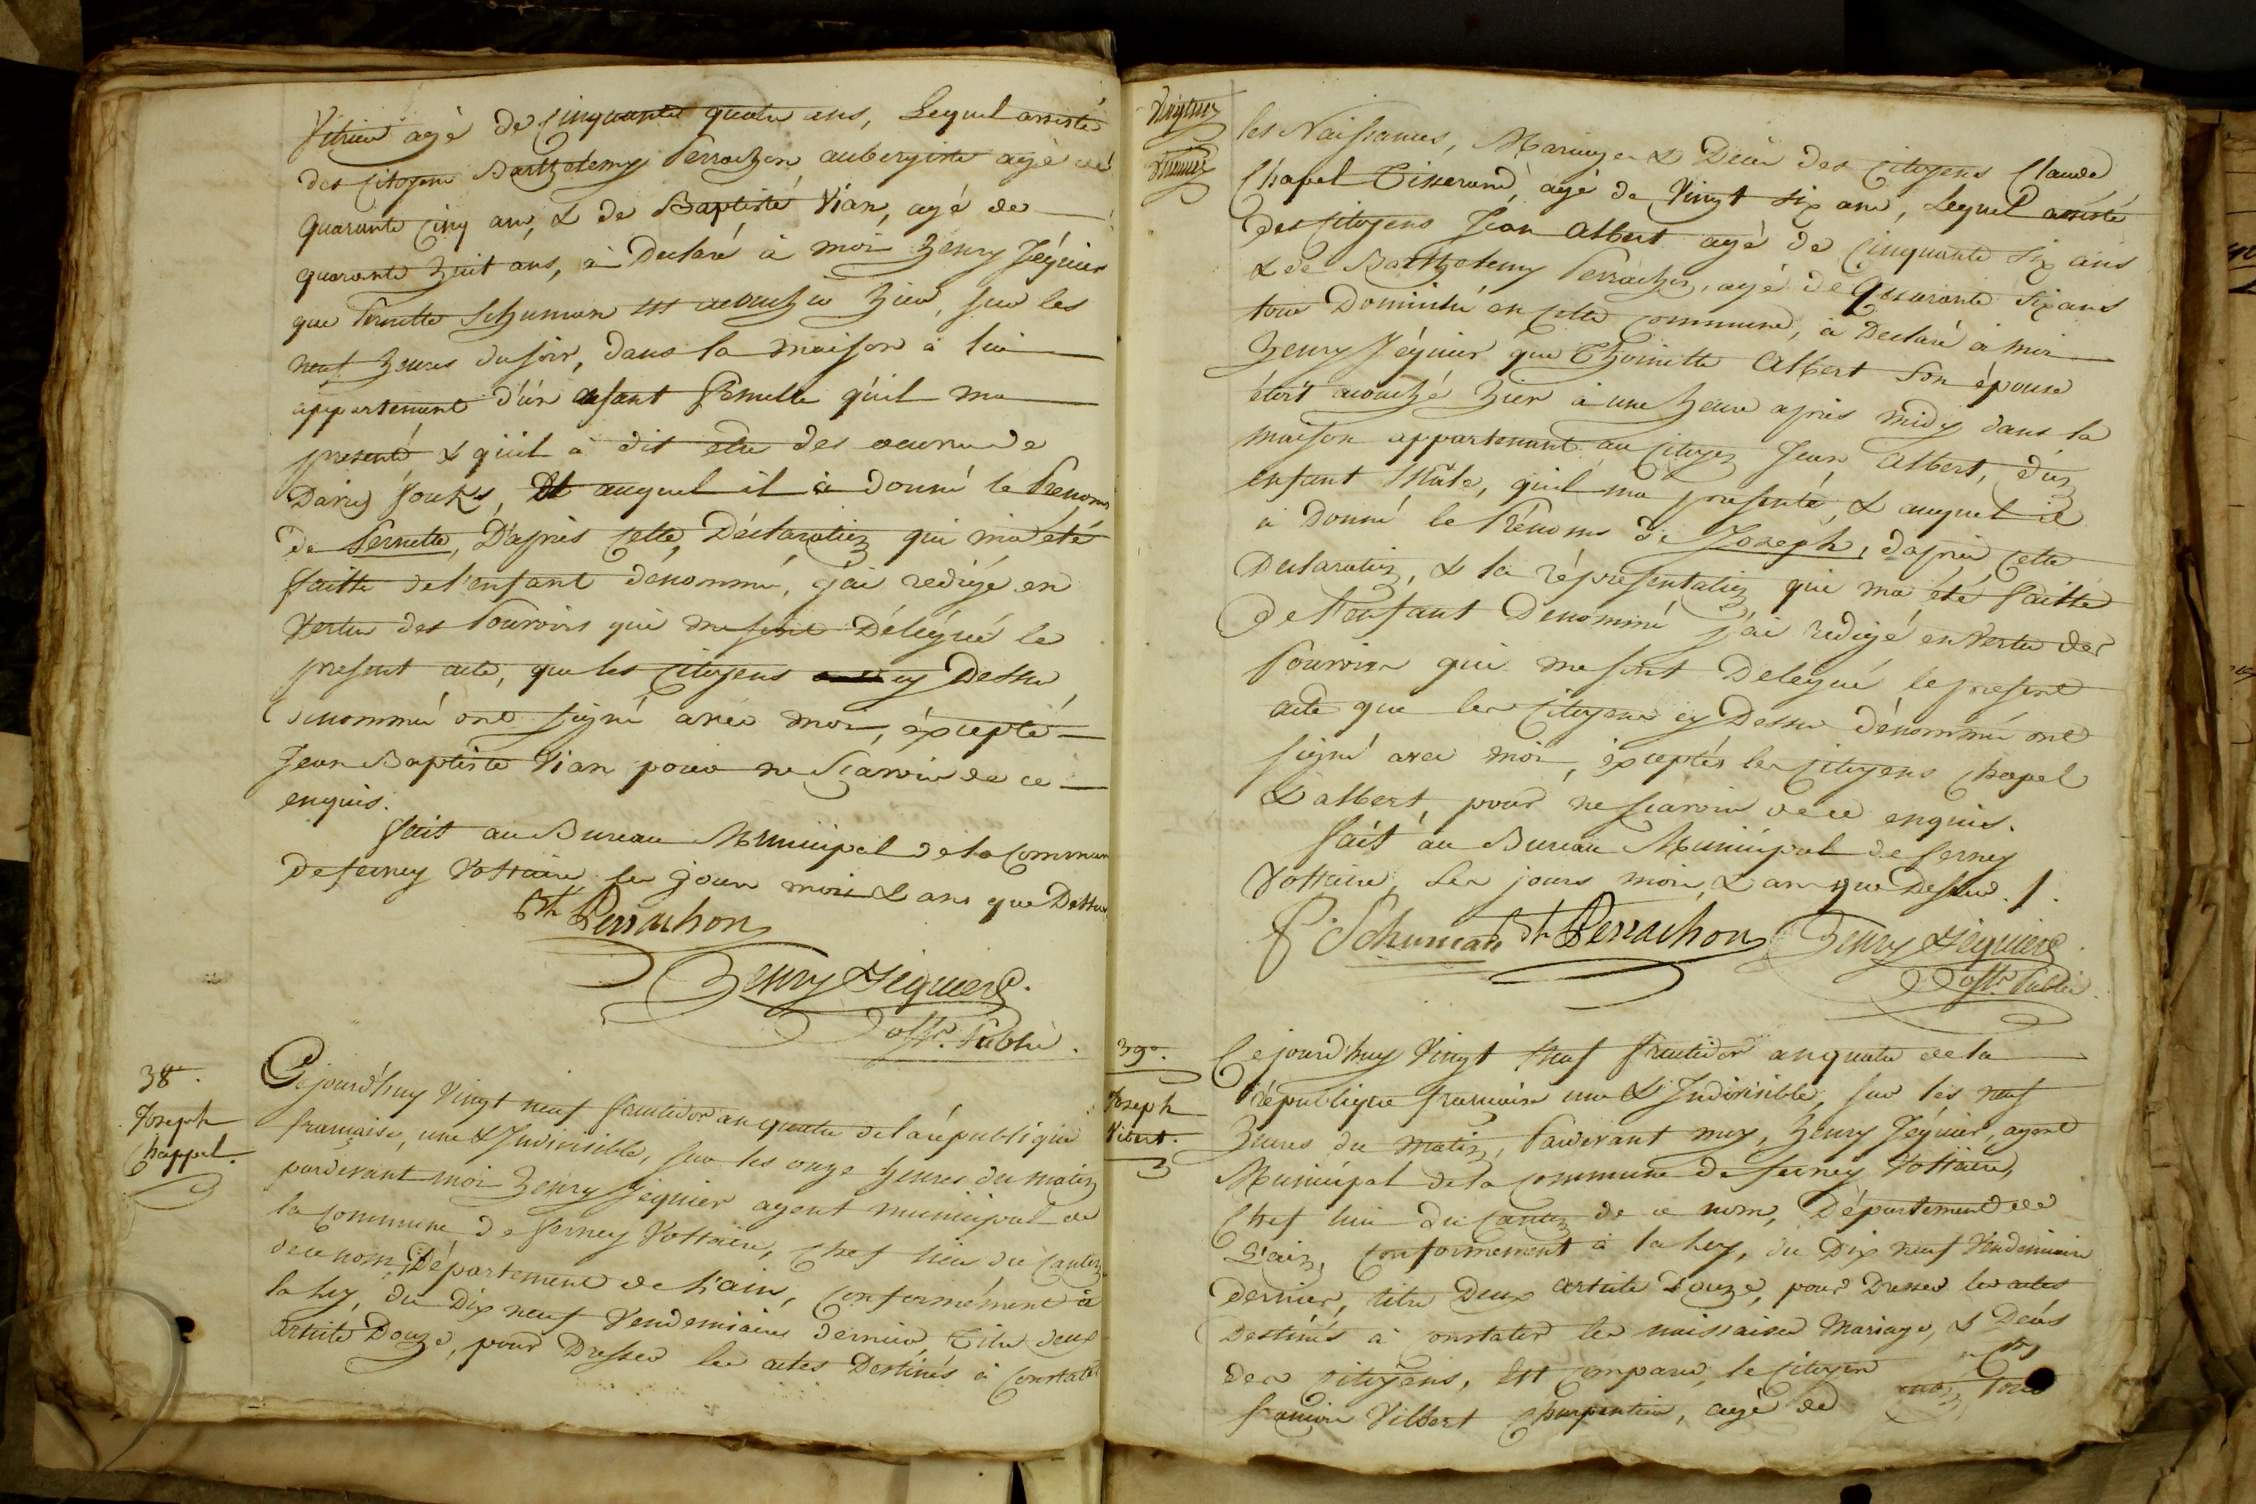 Vitrier agé de Cinquante quatre ans, Lequel assisté
des Citoyens Barthelemy Perrachon, aubergiste agé de
quarante Cinq ans, & de Baptisté Vian, agé de
quarante huit ans, à Declaré à moi henry Jéquier
que Pernette Schuman est accouchée hier, sur les
neuf heures du soir, dans la maison à lui
appartenant d'un enfant femelle qu'il ma
presenté & qu'il à dit être des oeuvre de
auquel il à donné le Prenoms
de Pernette, D'aprés Cette Déclaration qui ma été
faitte de l'enfant dénommé, j'ai redigé en
Vertu des Pouvoirs qui me sont Délégué le
present acte, que les Citoyens cy Dessu
denommé ont signé avec moi, éxcepté
Jean Baptiste Vian pour ne Scavoir de ce
enquis.
fait au Bureau Municipal de la Commune
de ferney Voltaire les jour mois & ans que Dessus
Bth Perrachon
henry Jéquier
offr. Public.
38.
Joseph
Chappel.
Cejourd'huy Vingt neuf fructidor an quatre de la république
francaise, une & Indivisible, sur les onze heures du matin
pardevant moi henry Jéquier agent municipal de
la Commune de ferney Voltaire, Chef lieu du Canton
de ce nom, Département de L'ain, Conformément à
la loy, du Dix neuf Vendemiaire dernier, Titre deux
article Douze, pour Dresser les actes Destinés à Constater
Vingtun
les Naissances, Mariages & Décès des Citoyens Claude
Chapel Tisserand, agé de Vingt six ans, Lequel assisté
des Citoyens Jean Albert agé de Cinquante six ans
& de Barthelemy Perrachon, agé de Quarante six ans
tous Domicilié en Cette Commune, à Declaré à moi
henry Jéquier que Thoinette Albert son épouse
étoit accouché hier à une heure aprés midy dans la
maison appartenant au Citoyen Jean Albert, d'un
enfant Mâle, qu'il ma presenté, & auquel il
à donné le Prénoms de Joseph, d'aprés Cette
Declaration, & la répresentation qui ma été faitte
de l'enfant Denommé j'ai redigé en Vertu des
Pouvoirs qui me sont Delegué le present
acte que les Citoyens cy Dessu dénommé ont
signé avec moi, éxceptés les Citoyens Chapel
& albert, pour ne scavoir de ce enquis.
fait au Bureau Municipal de ferney
Voltaire, Les jours mois, & an que Dessus. /.
P. Schuman Bth Perrachon henry Jéquier
offr. Public.
39.
Joseph
Vibert.
Cejourd'huy Vingt Neuf fructidor an quatre de la
république francaise une & Indivisible, sur les neuf
heures du matin, Pardevant moy, henry Jéquier, agent
Municipal de la Commune de ferney Voltaire,
Chef lieu du Canton de ce nom, Département de
L'ain, Conformement à la Loy, du Dix neuf Vendemiaire
dernier, titre Deux article Douze, pour Dresser les actes
Destinés à constater les naissaise Mariage, & Decés
des citoyens, Est comparu, le Citoyen
francois Vilbert Charpentier, agé de